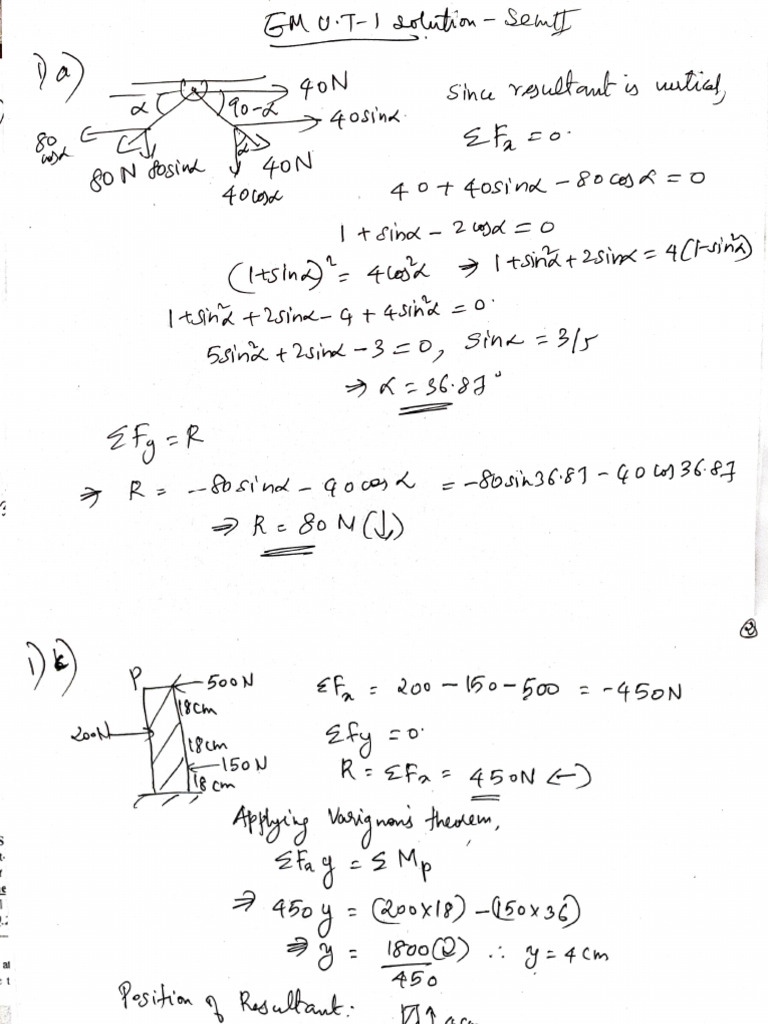 EM U.T-1 solution - Sem II
1) a)
40N
α
90-α
40sinα
80 cosα
80N
80sinα
α
40N
40cosα
Since resultant is vertical,
ΣFx = 0.
40 + 40sinα - 80cosα = 0
1 + sinα - 2cosα = 0
(1+sinα)² = 4cos²α ⇒ 1+sin²α+2sinα = 4(1-sin²α)
1+sin²α + 2sinα - 4 + 4sin²α = 0.
5sin²α + 2sinα - 3 = 0, sinα = 3/5
⇒ α = 36.87°
ΣFy = R
⇒ R = -80sinα - 40cosα = -80sin36.87 - 40cos36.87
⇒ R = 80 N (↓)
2
1)
P
500N
18cm
200N
18cm
150N
18cm
ΣFx = 200 - 150 - 500 = -450N
ΣFy = 0.
R = ΣFx = 450N (←)
Applying Varignon's theorem,
ΣFx y = ΣMp
⇒ 450y = (200×18) - (150×36)
⇒ y = 1800(↻)/450 ∴ y = 4cm
Position of Resultant: